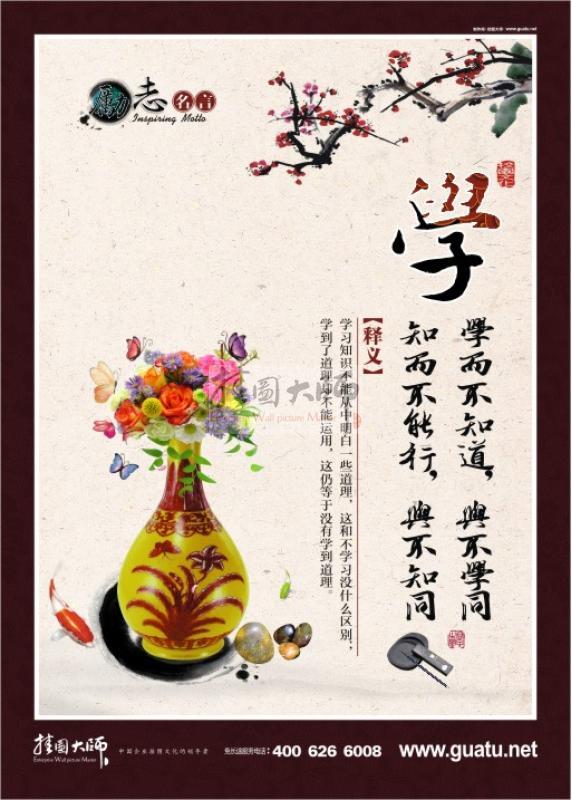 www.guatu.net
勵志名言
Inspiring Motto
學
學而不知道，與不學同
知而不能行，與不知同
【释义】
学习知识不能从中明白一些道理，这和不学习没什么区别，
学到了道理却不能运用，这仍等于没有学到道理。
挂图大师
Wall picture Master
挂图大师
Enterprise Wall picture Master
中国企业挂图文化的领导者
免长途服务电话：400 626 6008
www.guatu.net